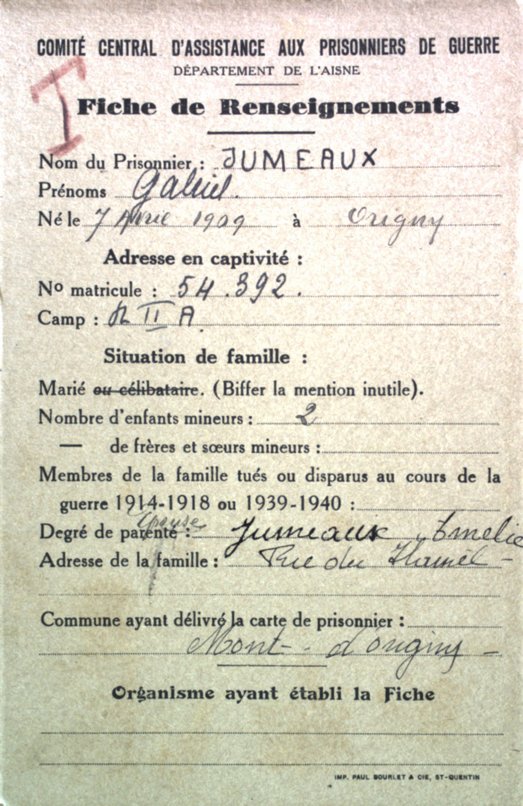 COMITÉ CENTRAL D'ASSISTANCE AUX PRISONNIERS DE GUERRE
DÉPARTEMENT DE L'AISNE
I
Fiche de Renseignements
Nom du Prisonnier : JUMEAUX
Prénoms Gabriel.
Né le 7 Avril 1909 à Origny
Adresse en captivité :
No matricule : 54.392.
Camp : II A
Situation de famille :
Marié ou célibataire. (Biffer la mention inutile).
Nombre d'enfants mineurs : 2
— de frères et sœurs mineurs :
Membres de la famille tués ou disparus au cours de la
guerre 1914-1918 ou 1939-1940 :
épouse
Degré de parenté : Jumeaux Emelie
Adresse de la famille : Rue du Hamel -
Commune ayant délivré la carte de prisonnier :
Mont - d'origny -
Organisme ayant établi la Fiche
IMP. PAUL BOURLET & CIE, ST-QUENTIN